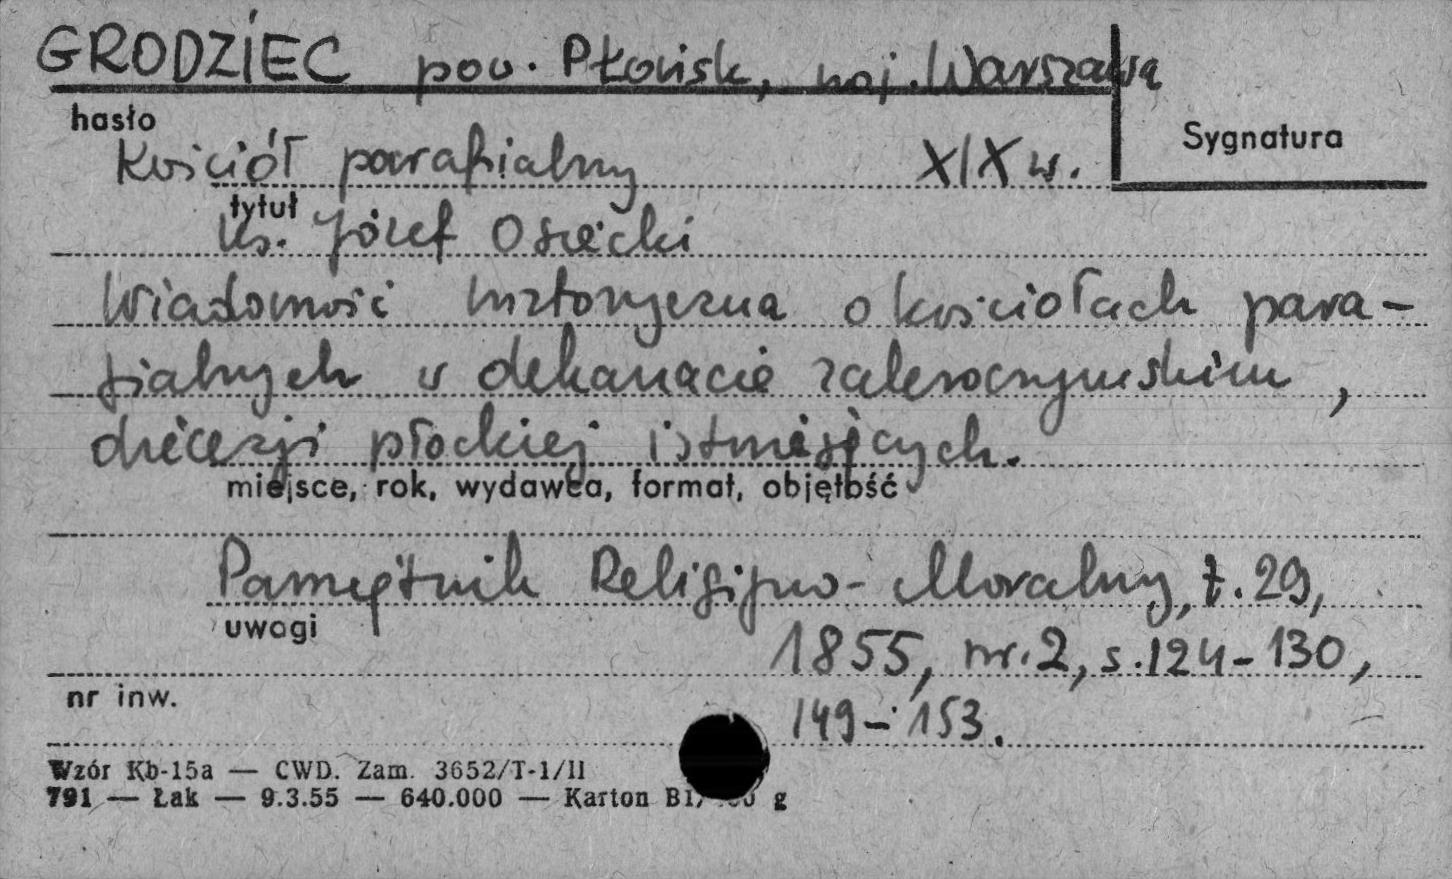 GRODZIEC pow. Płońsk, woj. Warszawa
hasło
Sygnatura
Kościół parafialny XIX w.
tytuł
Ks. Józef Osiecki
Wiadomość historyczna o kościołach para-
fialnych w dekanacie zakroczymskim,
diecezji płockiej istniejących.
miejsce, rok, wydawca, format, objętość
Pamiętnik Religijno-Moralny, t. 29,
uwagi
1855, nr. 2, s. 124-130,
nr inw.
149-153.
Wzór Kb-15a — CWD. Zam. 3652/T-1/II
791 — Łak — 9.3.55 — 640.000 — Karton g